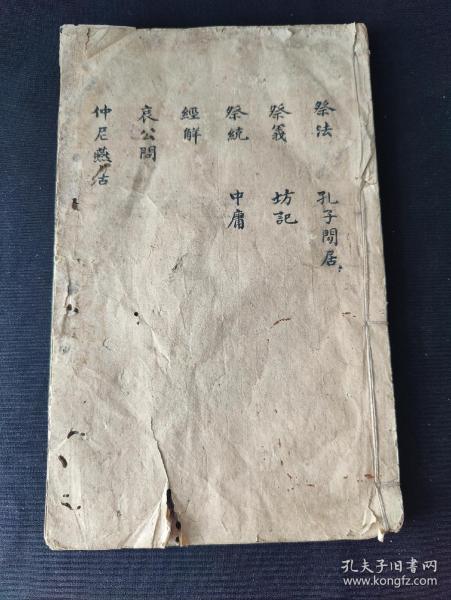 祭法
祭義
祭統
經解
哀公問
仲尼燕居
孔子閒居
坊記
中庸
孔夫子旧书网
www.kongfz.com